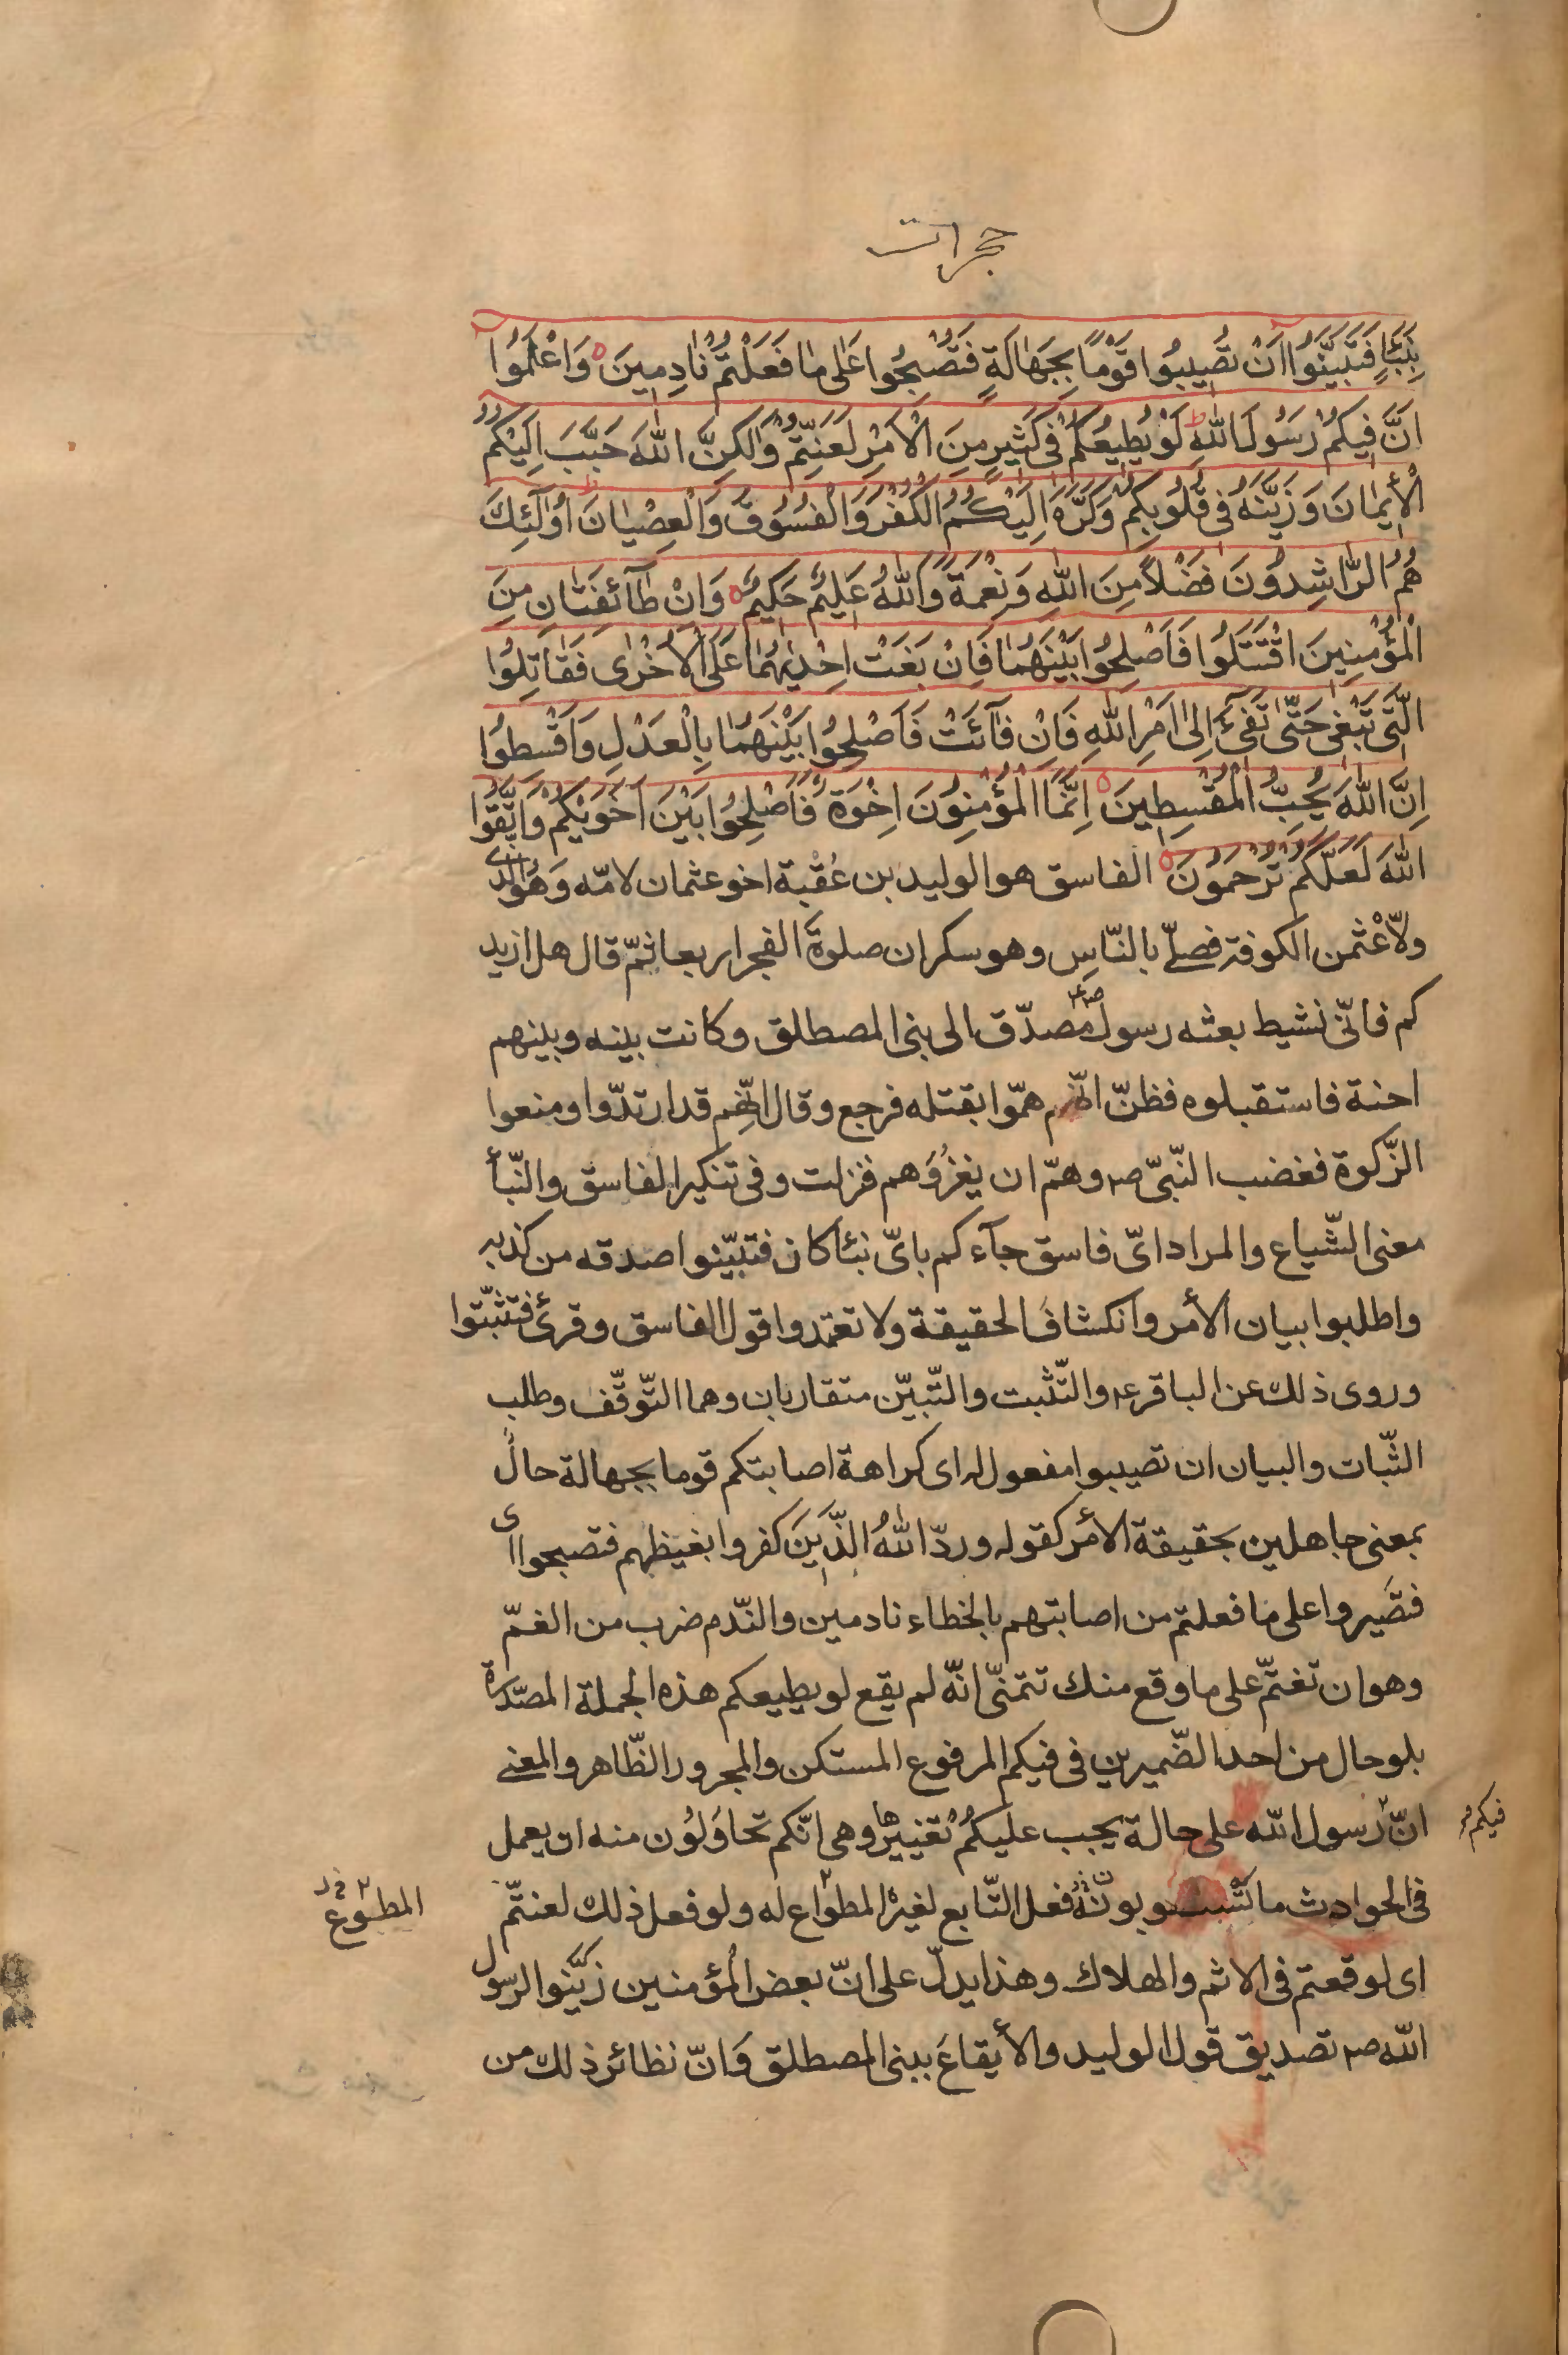 حجرات
بِنَبَأٍ فَتَبَيَّنُوا اَنْ تُصيبُوا قَوْمًا بِجَهٰالَةٍ فَتُصْبِحُوا عَلٰى مٰا فَعَلْتُمْ نٰادِمينَ وَاعْلَمُوا
اَنَّ فيكُمْ رَسُولَ اللّٰهِ ط لَوْ يُطيعُكُمْ فى كَثيرٍ مِنَ الْاَمْرِ لَعَنِتُّمْ وَلٰكِنَّ اللّٰهَ حَبَّبَ اِلَيْكُمُ
الْأيمٰانَ وَزَيَّنَهُ فى قُلُوبِكُمْ وَكَرَّهَ اِلَيْكُمُ الْكُفْرَ وَالْفُسُوقَ وَالْعِصْيٰانَ ط اُولٰٓئِكَ
هُمُ الرّٰاشِدُونَ فَضْلاً مِنَ اللّٰهِ وَنِعْمَةً وَاللّٰهُ عَليمٌ حَكيمٌ وَاِنْ طٰٓائِفَتٰانِ مِنَ
الْمُؤْمِنينَ اقْتَتَلُوا فَاَصْلِحُوا بَيْنَهُمٰا فَاِنْ بَغَتْ اِحْدٰيهُمٰا عَلَى الْاُخْرٰى فَقٰاتِلُوا
الَّتى تَبْغى حَتّٰى تَفىٓءَ اِلىٰ اَمْرِ اللّٰهِ فَاِنْ فٰٓائَتْ فَاَصْلِحُوا بَيْنَهُمٰا بِالْعَدْلِ وَاَقْسِطُوا
اِنَّ اللّٰهَ يُحِبُّ الْمُقْسِطينَ اِنَّمَا الْمُؤْمِنُونَ اِخْوَةٌ فَاَصْلِحُوا بَيْنَ اَخَوَيْكُمْ وَاتَّقُوا
اللّٰهَ لَعَلَّكُمْ تُرْحَمُونَ الفاسق هو الوليد بن عُقْبة اخو عثمان لامّه وَهُوَ الّذى
ولّاه عْثمن الكوفة فصلّى بالنّاسِ وهو سكران صلوةَ الفجر اربعا ثمّ قال هل ازيد
كم فانّى نشيط بعثه رسول ص مصدّق الى بنى المصطلق وكانت بينه وبينهم
احنة فاستقبلوه فظنّ انّهم همّوا بقتله فرجع وقال انّهم قد ارتدّوا ومنعوا
الزّكوة فغضب النّبىّ ص وهمّ ان يغزُوَهم فنزلت وفى تنكير الفاسق والنّبأ
معنى الشّياع والمراد اىّ فاسق جآءكم باىّ نبئا كان فتبيّنوا صدقه من كذبه
واطلبوا بيان الأمر وانكشافَ الحقيقة ولا تعتمدوا قول الفاسق وقرئ فتثبّتوا
وروى ذلك عن الباقر ع والتّثبت والتّبيّن متقاربان وهما التّوقّف وطلب
الثّبات والبيان ان تصيبوا مفعول له اى كراهة اصابتكم قوما بجهالة حالٌ
بمعنى جاهلين بحقيقة الأمر كقوله وردّ اللّٰهُ الَّذينَ كفروا بغيظهم فتصبحوا اى
فتصَيروا على ما فعلتم من اصابتهم بالخطاء نادمين والنّدم ضرب من الغمّ
وهو ان تغتمّ على ما وقع منك تتمنّى انّه لم يقع لو يطيعكم هذه الجملة المصدّرة
بلو حال من احد الضّميرين فى فيكم المرفوع المستكن والمجرور الظّاهر والمعنى
انّ رسول اللّه على حالة يجب عليكُمْ تغييرها وهى انّكم تحاوَلُون منه ان يعمل
فيكم
فى الحوادث ما فعل التّابع لغيره المطواع له ولو فعل ذلك لعنتّم
المطوع
اى لوقعتم فى الاثم والهلاك وهذا يدلّ على انّ بعض المؤمنين زَيَّنوا لرسول
اللّه ص تصديق قول الوليد والأيقاعَ ببنى المصطلق وَانّ نظائر ذلك من